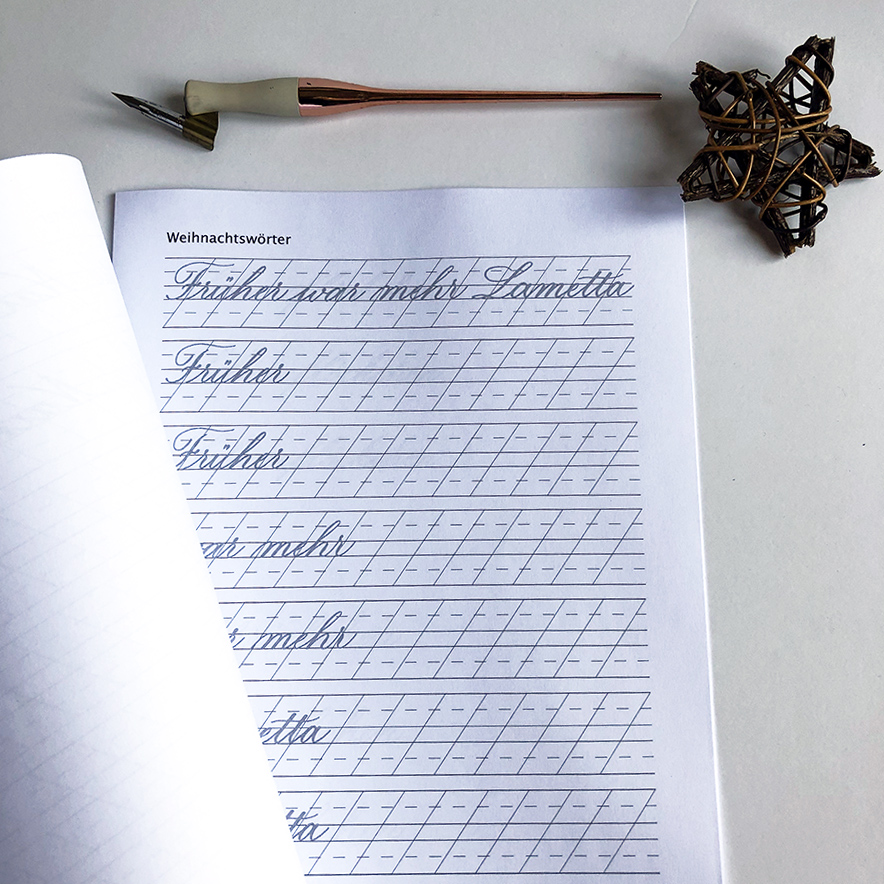 Weihnachtswörter
Früher war mehr Lametta
Früher
Früher
mehr
mehr